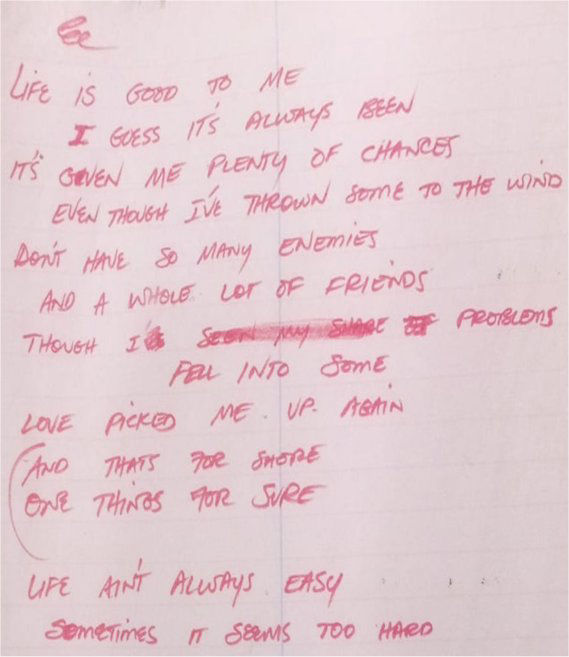 LIFE IS GOOD TO ME
I GUESS IT'S ALWAYS BEEN
IT'S GIVEN ME PLENTY OF CHANCES
EVEN THOUGH I'VE THROWN SOME TO THE WIND
DON'T HAVE SO MANY ENEMIES
AND A WHOLE LOT OF FRIENDS
THOUGH I SEEN MY SHARE OF PROBLEMS
FELL INTO SOME
LOVE PICKED ME UP AGAIN
AND THATS FOR SHORE
ONE THINGS FOR SURE
LIFE AIN'T ALWAYS EASY
SOMETIMES IT SEEMS TOO HARD